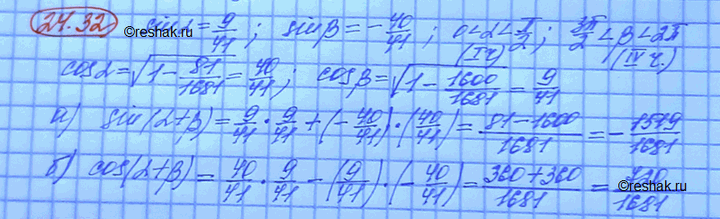 24.32 sinα = 9/41; sinβ = -40/41; 0<α<π/2; 3π/2<β<2π
©reshak.ru (I ч.) (IV ч.)
cosα = √(1 - 81/1681) = 40/41; cosβ = √(1 - 1600/1681) = 9/41
а) sin(α+β) = 9/41 · 9/41 + (-40/41) · (40/41) = (81-1600)/1681 = -1519/1681
б) cos(α+β) = 40/41 · 9/41 - (9/41) · (-40/41) = (360+360)/1681 = 720/1681
©reshak.ru